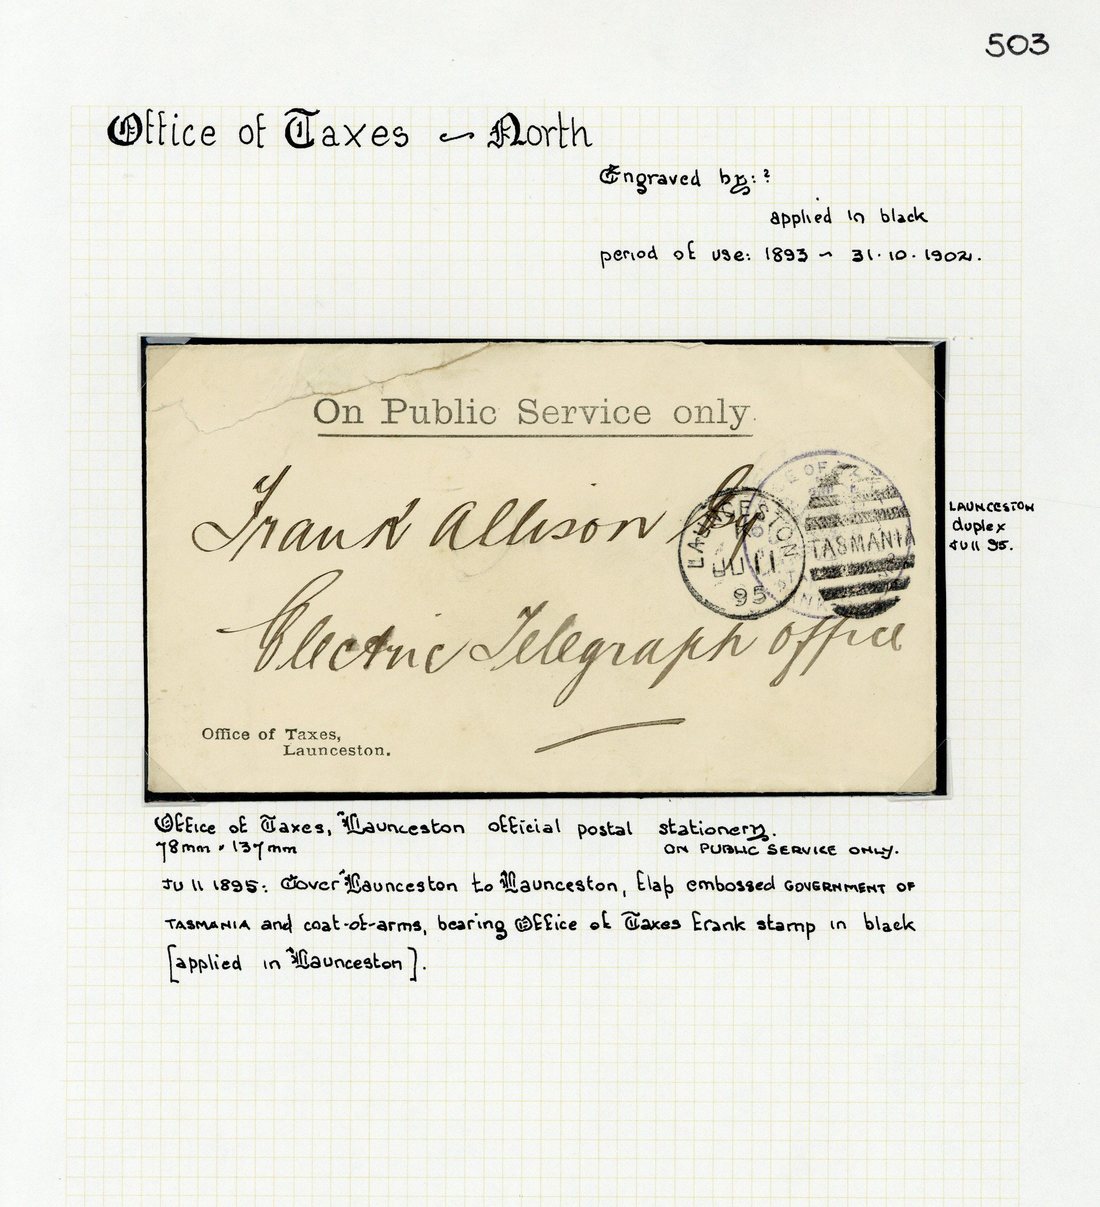 503
Office of Taxes ~ North
Engraved by: ?
applied in black
period of use: 1893 ~ 31.10.1902.
On Public Service only.
Frank Allison Esq
Electric Telegraph Office
LAUNCESTON
JU 11
95
TASMANIA
E OF
Office of Taxes,
Launceston.
LAUNCESTON
duplex
JU 11 95.
Office of Taxes, Launceston official postal stationery.
78mm × 137mm ON PUBLIC SERVICE ONLY.
JU 11 1895: Cover Launceston to Launceston, flap embossed GOVERNMENT OF
TASMANIA and coat-of-arms, bearing Office of Taxes frank stamp in black
[applied in Launceston].